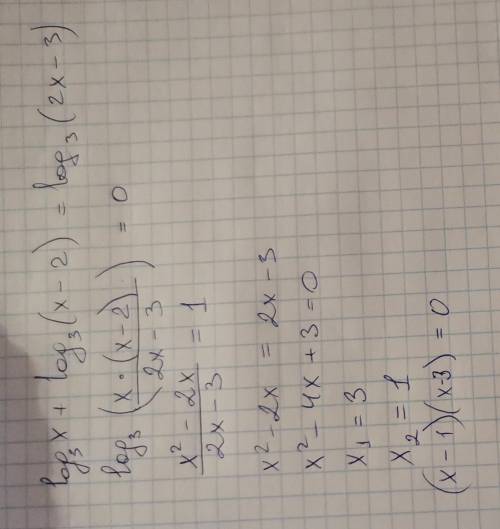 log₃x + log₃(x - 2) = log₃(2x - 3)
log₃(x · (x - 2) / 2x - 3) = 0
x² - 2x / 2x - 3 = 1
x² - 2x = 2x - 3
x² - 4x + 3 = 0
x₁ = 3
x₂ = 1
(x - 1)(x - 3) = 0